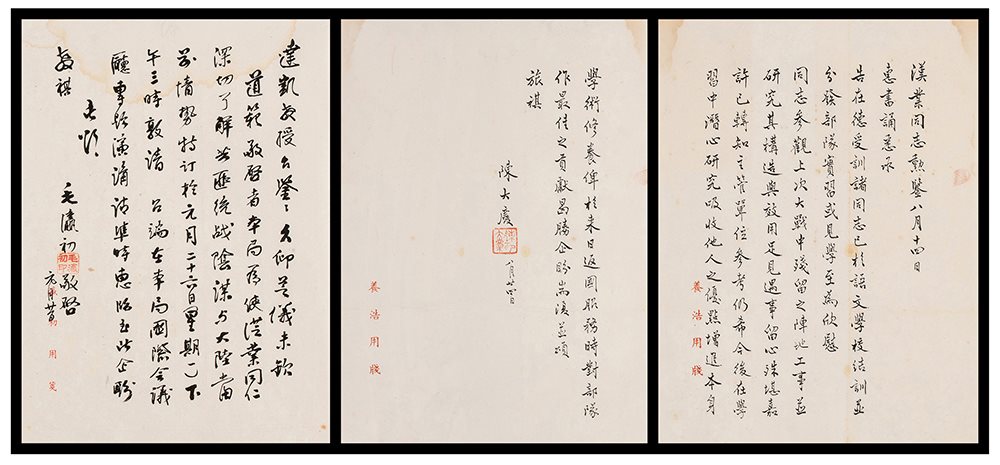 漢業同志勳鑒八月十四日
惠書誦悉承
告在德受訓諸同志已於語文學校結訓並
分發部隊實習或見學至為欣慰
同志參觀上次大戰中殘留之陣地工事並
研究其構造與效用足見遇事留心殊堪嘉
許已轉知主管單位參考仍希今後在學
習中潛心研究吸收他人之優點增進本身
養浩用牋
學術修養俾於來日返國服務時對部隊
作最佳之貢獻曷勝企盼耑復並頌
旅祺
陳大慶
八月廿四日
養浩用牋
達凱教授台鑒:久仰芝儀未欽
道範敬啓者本局為使從業同仁
深切了解共匪統战陰謀与大陸當
前情勢特訂於元月二十六日星期一下
午三時敦請 台端在本局國際會議
廳專題演講請準時惠臨至此企盼
教祺
毛瀛初敬啓
用箋